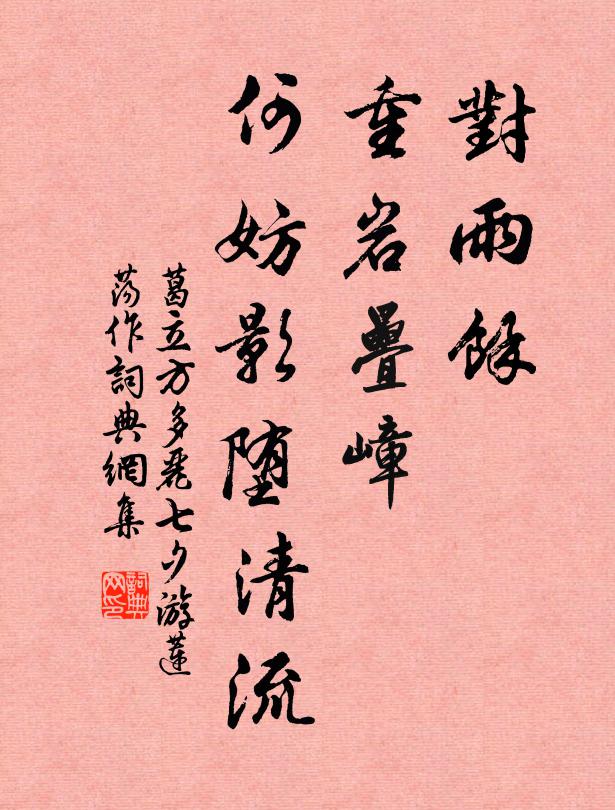 對雨餘
重岩疊嶂
何妨影堕清流
葛立方多麗七夕游蓮
蕩作詞典網集
詞典网印